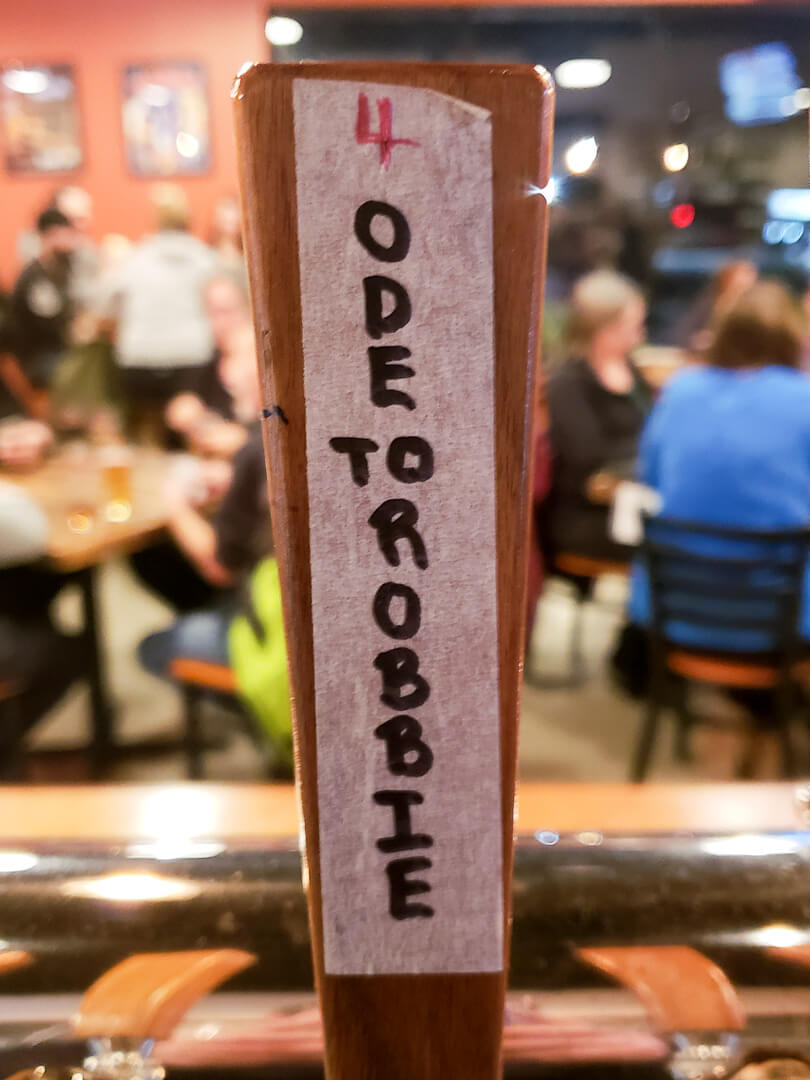 4
ODE
TO
ROBBIE